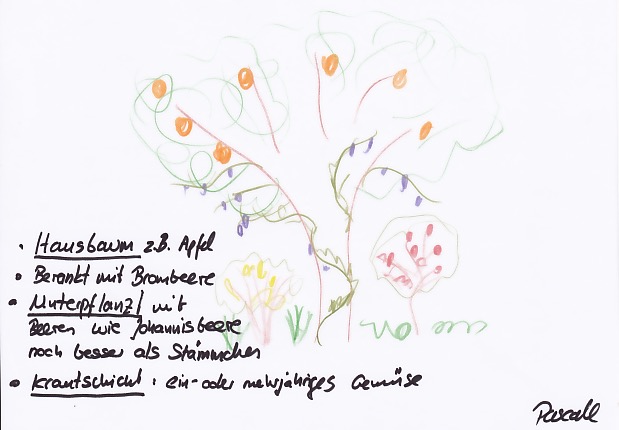 • Hausbaum z.B. Apfel
• Berankt mit Brombeere
• Unterpflanzt mit
Beeren wie Johannisbeere
noch besser als Stämmchen
• Krautschicht : ein- oder mehrjähriges Gemüse
Pascale